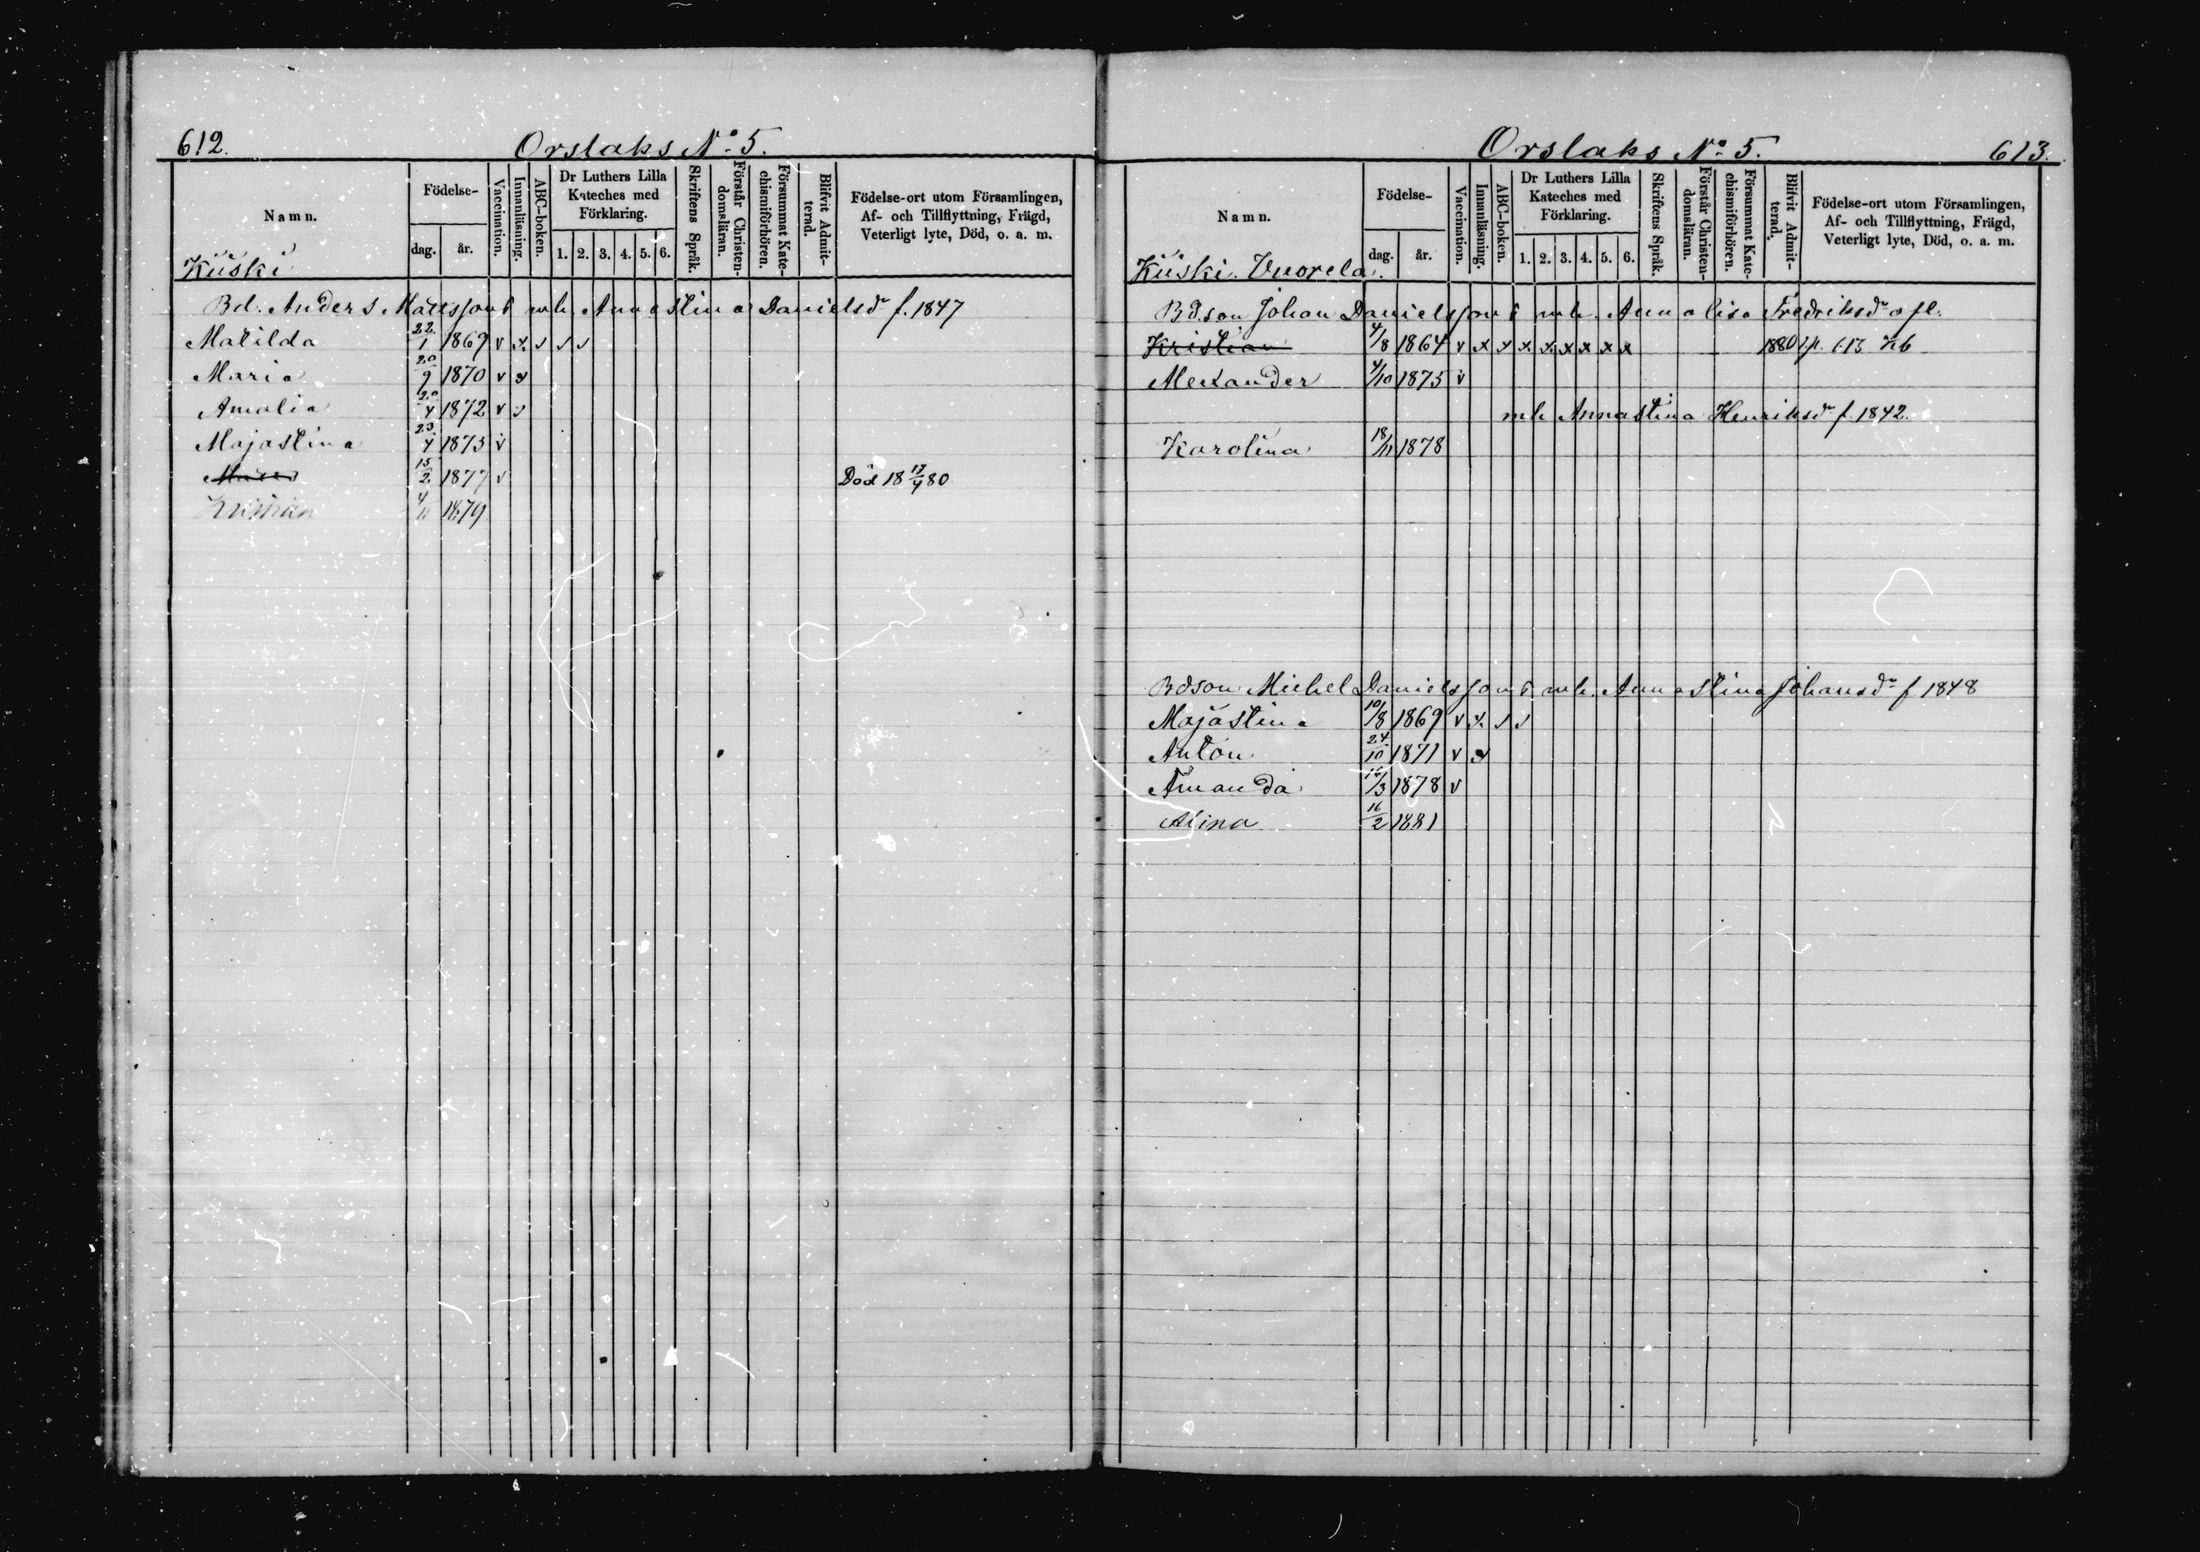 612.
Orslaks No. 5.
Namn.
Födelse-
dag.
år.
Vaccination.
Innanläsning.
ABC-boken.
Dr Luthers Lilla
Kateches med
Förklaring.
1. 2. 3. 4. 5. 6.
Skriftens Språk.
Förstår Christen-
domsläran.
Försummat Kate-
chismiförhören.
Blifvit Admit-
terad.
Födelse-ort utom Församlingen,
Af- och Tillflyttning, Frägd,
Veterligt lyte, Död, o. a. m.
Kiiski
Bd. Anders Mattsson mh. Annastina Danielsdr f. 1847
Matilda 22/1 1869 v x
Maria 20/9 1870 v x
Amalia 20/4 1872 v
Majastina 23/4 1875 v
15/2 1877 v Död 18 17/4 80
Kristian 4/11 1879
Orslaks No. 5.
613.
Namn.
Födelse-
dag.
år.
Vaccination.
Innanläsning.
ABC-boken.
Dr Luthers Lilla
Kateches med
Förklaring.
1. 2. 3. 4. 5. 6.
Skriftens Språk.
Förstår Christen-
domsläran.
Försummat Kate-
chismiförhören.
Blifvit Admit-
terad.
Födelse-ort utom Församlingen,
Af- och Tillflyttning, Frägd,
Veterligt lyte, Död, o. a. m.
Kiiski. Vuorela.
Bdson Johan Danielsson mh. Annalisa Fredriksdr afl.
Kristian 4/8 1864 v x x x x x x x x 1880 p. 613 kb
Alexander 4/10 1875 v
mh Annastina Henriksdr f. 1842.
Karolina 18/11 1878
Bdson Michel Danielsson mh. Annastina Johansdr f 1848
Majastina 10/8 1869 v x
Anton 24/10 1871 v x
Amanda 16/3 1878 v
Alina 16/2 1881